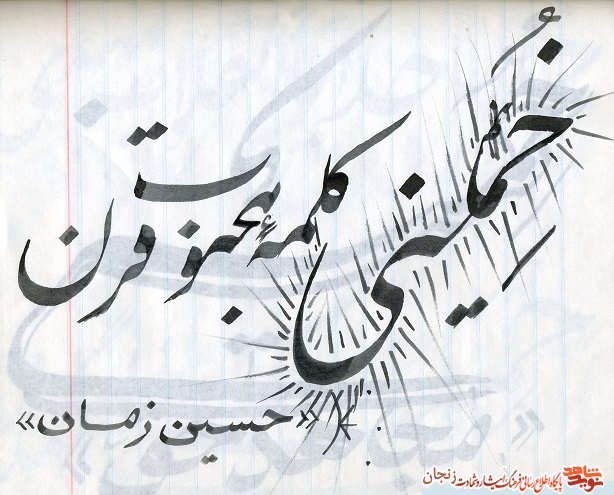 خُمینی کلمهٔ قرن
«حسین زمان»
نوید شاهد پایگاه اطلاع رسانی فرهنگ ایثار و شهادت زنجان